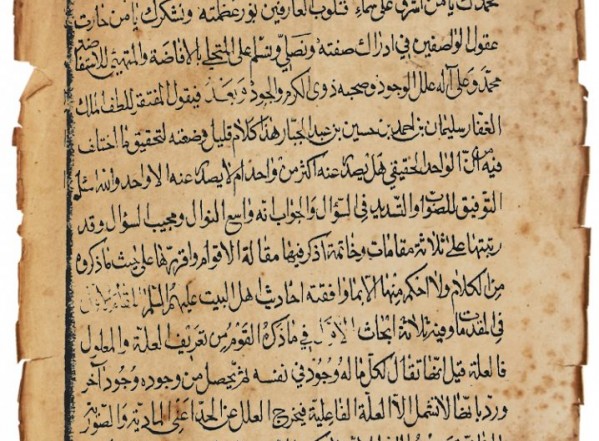 نحمدك يا من اشرق على سماء قلوب العارفين نور عظمته ونشكرك يا من حارت
عقول الواصفين في ادراك صفته ونصلي ونسلم على المتحلي بالافاضة والمتهيئ للاستفاضة
محمد وعلى آله علل الوجود وصحبه ذوي الكرم والجود وبعد فيقول المفتقر للطف الملك
الغفار سليمان بن احمد بن حسين بن عبد الجبار هذا كلام قليل وضعته لتحقيق ما اختلف
فيه من ان الواحد الحقيقي هل يصدر عنه اكثر من واحد ام لا يصدر عنه الا واحد والله اسئل
التوفيق للصواب والتسديد في السؤال والجواب انه واسع النوال ومجيب السؤال وقد
رتبتها على ثلاثة مقامات وخاتمة اذكر فيها مقالة الاقوام واقررها على حيث ما ذكروه
من الكلام ولا احكم منها الا بما وافقته احاديث اهل البيت عليهم السلم المقام الاول
في المقدمات وفيه ثلاثة ابحاث الاول في ما ذكره القوم من تعريف العلة والمعلول
فالعلة قيل انها تقال لكل ما له وجود في نفسه ثم يحصل من وجوده وجود آخر
ورد بانها لا تشمل الا العلة الفاعلية فيخرج العلل عن الحد اعني المادية والصورية